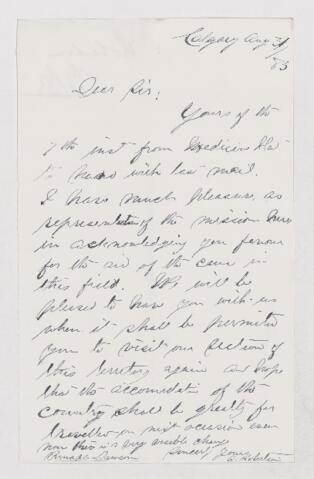 Calgary Aug 31/83
Dear Sir:
Yours of the
7th inst from Medicine Hat
to hand with last mail.
I have much pleasure, as
representative of the mission here
in acknowledging your favour
for the aid of the cause in
this field. We will be
pleased to have you with us
when it shall be permitted
you to visit our section of
this territory again and hope
that the accomodation of the
country shall be greatly for
travellers on next occasion even
now there is a very sensible change
Sincerely yours